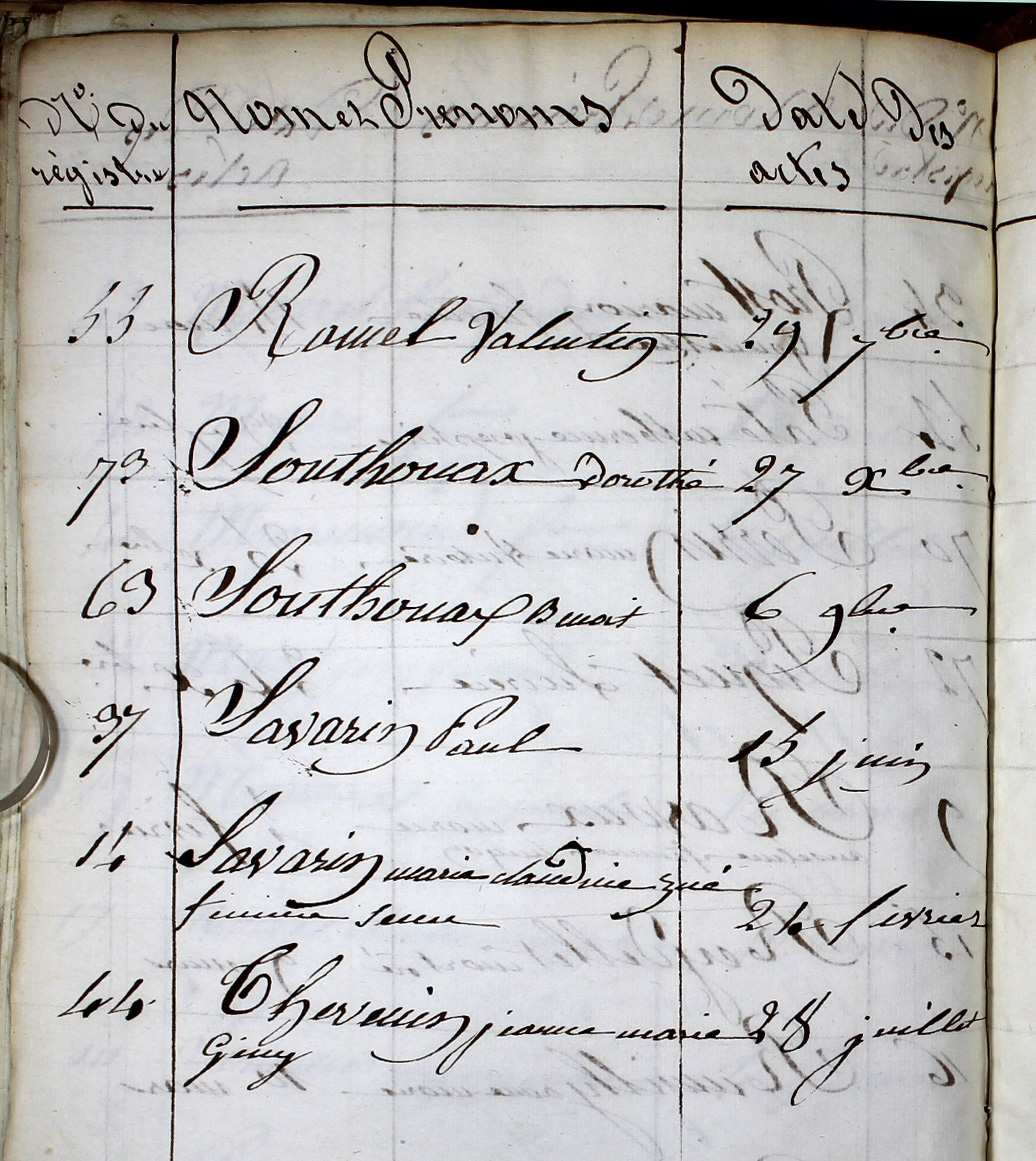 Nº du Nom et Prenoms Date Des
régistre actes
55 Romel Valentin 29 7bre
73 Southonax Dorothé 27 Xbre
63 Southonax Benoit 6 9bre
37 Savarin Paul 15 juin
14 Savarin marie claudine
femme 24 fevrier
44 Thevenin jeanne marie 28 juillet